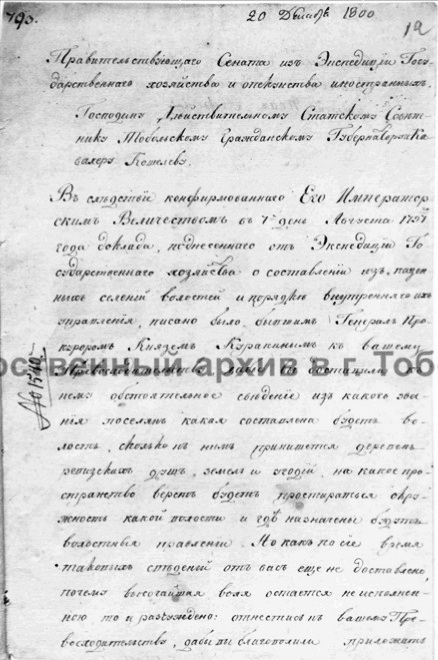 793.
20 Декабр 1800
12
Правительствующаго Сената изъ Экспедиціи Госу-
дарственнаго хозяйства и опекунства иностранныхъ.
Господину Дѣйствительному Статскому Совѣт-
нику Тобольскому Гражданскому Губернатору и Ка-
валеру Кошелеву.
Въ слѣдствіе конфирмованнаго Его Император-
скимъ Величествомъ въ 7 день Августа 1797
года доклада, поднесеннаго отъ Экспедиціи Го-
сударственнаго хозяйства о составленіи изъ казен-
ныхъ селеній волостей и порядкѣ внутренняго ихъ
управленія, писано было бывшимъ Генералъ Про-
куроромъ Княземъ Куракинымъ къ вашему
Превосходительству, дабы вы доставили къ
нему обстоятельное свѣденіе изъ какого зва-
нья поселянъ какая составлена будетъ во-
лость, сколько къ нимъ припишется деревень
ревизскихъ душъ, земель и угодій, на какое про-
странство верстъ будетъ простираться окру-
жность какой волости и гдѣ назначены будутъ
волостныя правленіи. Но какъ по сіе время
таковыхъ свѣденій отъ васъ еще не доставлено,
почему высочайшая воля остается не исполнен-
ною то и разсуждено: отнестись къ вашему Пре-
восходительству, дабы вы благоволили приложить
№ 1540
рственный архив в г. Тоб